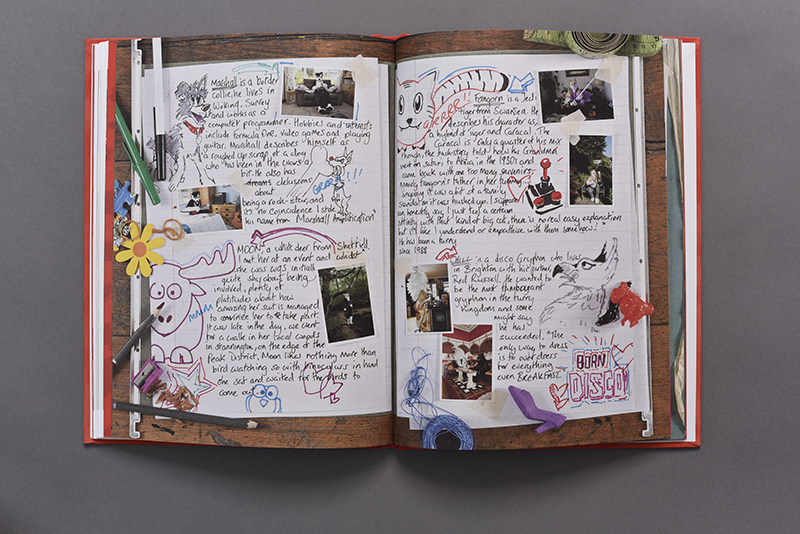 Marshall is a border
collie, he lives in
Woking, Surrey
and works as a
computer programmer. Hobbies and interests
include formula one, video games and playing
guitar. Marshall describes himself as
a roughed up scrap of a dog
who "has been in the wars a
bit. He also has
delusions
about
being a rock-star, and
its "no coincidence I stole
his name from Marshall Amplification"
GRRR?!!!!
MOON, a white deer from Sheffield
I met her at an event and whilst
she was initially
quite shy about being
involved, plenty of
platitudes about how
amazing her suit is managed
to convince her to take part.
It was late in the day, we went
for a walk in her local woods
in Stannington, on the edge of the
Peak District. Moon likes nothing more than
bird watching so with binoculars in hand
she sat and waited for the birds to
come out
GRRRR!!
Fangorn is a
tiger from Swansea. He
describes his character as
a hybrid of Tiger and Caracal. The
Caracal is only a quarter of his mix
though, the back-story told how his Grandma
went on safari to Africa in the 1930s and
came back with one too many souvenirs.
Mandy, Fangorn's father in her tummy,
unhappy it was a bit of a family
scandal so it was hushed up. I suppose
can honestly say I just feel a certain
affinity with that kind of big cat, there is no real easy explanation
but it's like I understand or empathise with them somehow!"
He has been a furry
since 1988
is a disco Gryphon who lives
in Brighton with his partner,
Red Russell. He wanted to
be the most flamboyant
gryphon in the furry
kingdom and some
might say
he has
succeeded, "The
only way to dress
is to over dress
for everything
even BREAKFAST.
BORN
DISCO